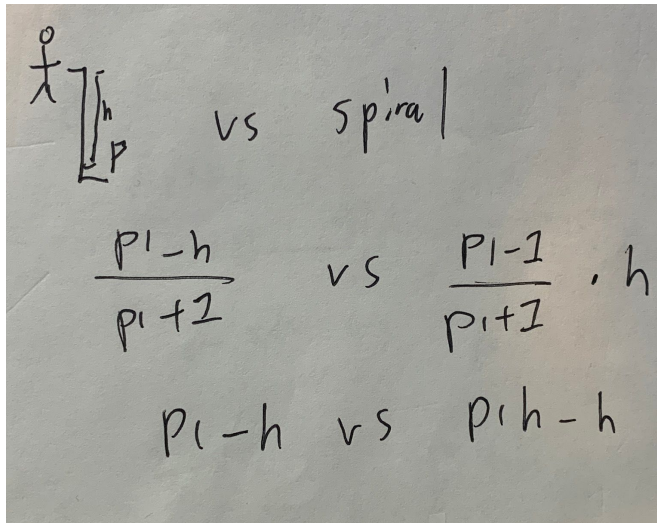 h
p
vs spiral
pi-h / pi+1 vs pi-1 / pi+1 · h
pi-h vs pih-h